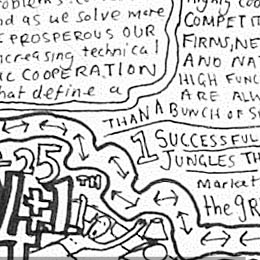 problems.
d as we solve more
PROSPEROUS OUR
ncreasing technical
IC COOPERATION
hat define a
highly coo
COMPETIT
FIRMS, NE
AND NAT
HIGH FUNC
ARE ALW
THAN A BUNCH OF S
1 SUCCESSFUL
JUNGLES TH
Market
the gR
25
4+1TH